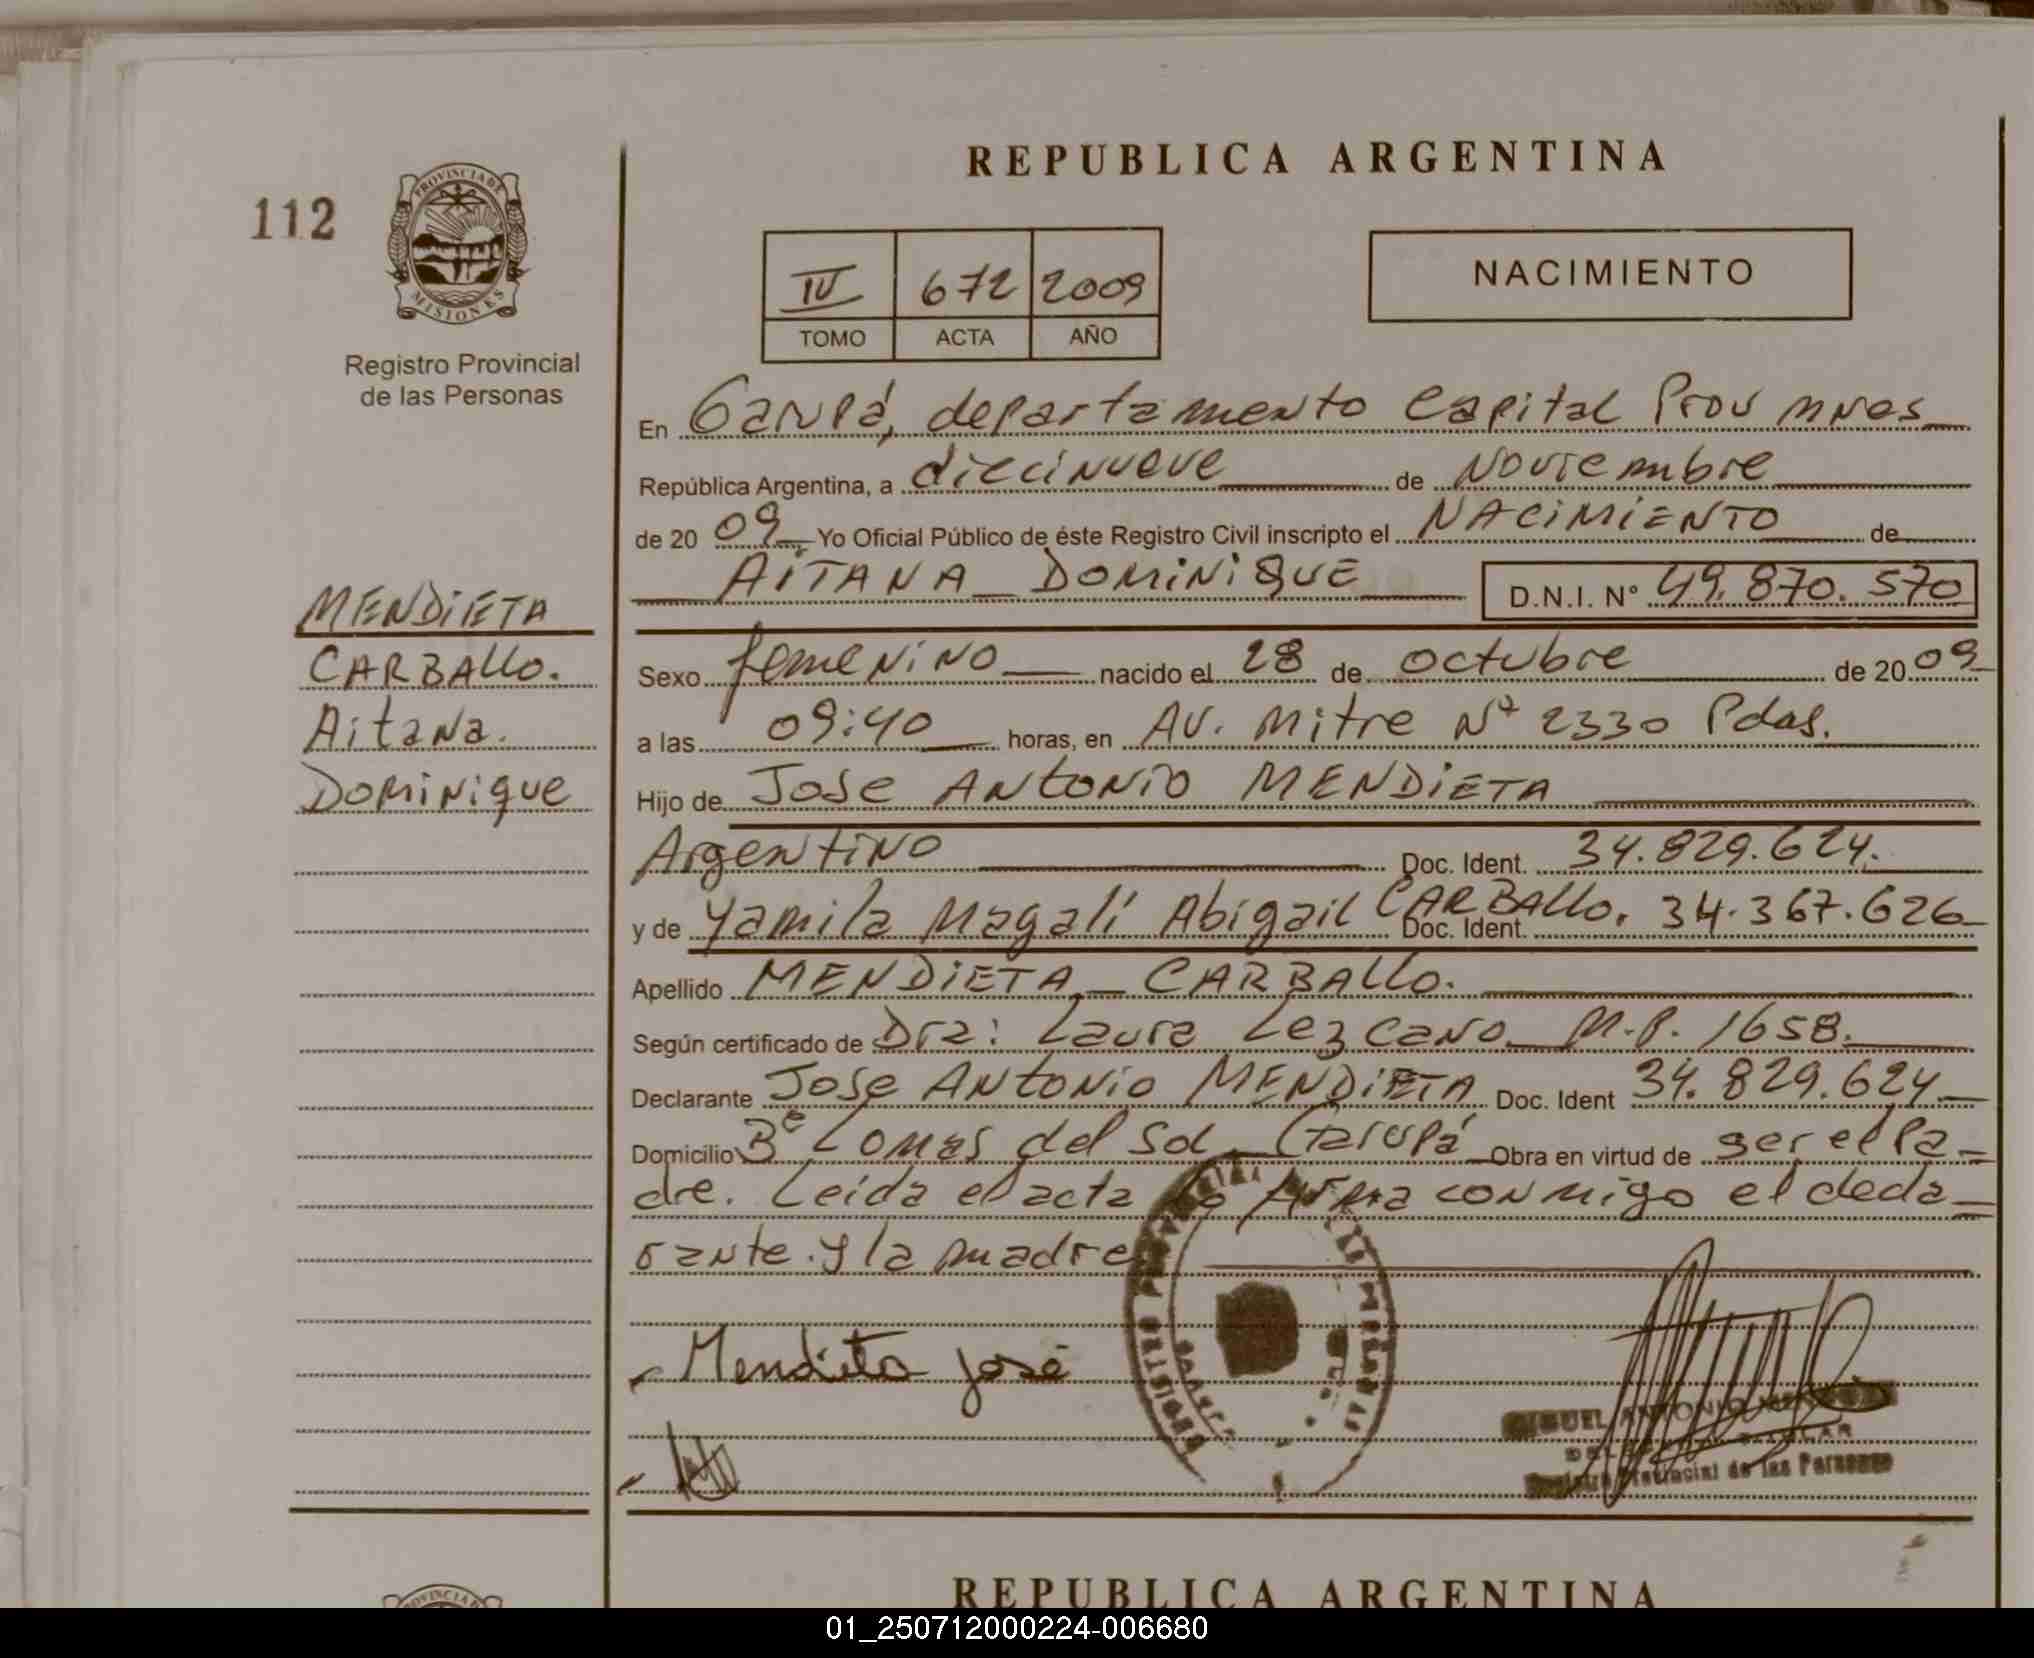 REPUBLICA ARGENTINA
112
PROVINCIA DE
MISIONES
Registro Provincial
de las Personas
IV 672 2009
TOMO ACTA AÑO
NACIMIENTO
En Garupá, departamento Capital Prov mnes
República Argentina, a diecinueve de Noviembre
de 20 09 Yo Oficial Público de éste Registro Civil inscripto el NACIMIENTO de
AITANA DOMINIQUE D.N.I. N° 49.870.570
MENDIETA
CARBALLO.
Aitana.
Dominique
Sexo femenino nacido el 28 de octubre de 20 09
a las 09:40 horas, en AV. Mitre Nº 2330 Pdas.
Hijo de Jose ANtoNio MENDIETA
Argentino Doc. Ident. 34.829.624.
y de Yamila Magalí Abigail CARBALLO. Doc. Ident. 34.367.626
Apellido MENDIETA CARBALLO.
Según certificado de Dra: Laura Lezcano M.P. 1658.
Declarante Jose ANtoNio MENDIETA Doc. Ident 34.829.624
Domicilio Bº Lomas del Sol Garupá Obra en virtud de ser el Pa-
dre. Leída el acta la firma conmigo el decla-
rante y la madre
Mendieta José
MIGUEL ANTONIO
Registro Provincial de las Personas
REPUBLICA ARGENTINA
01_250712000224-006680